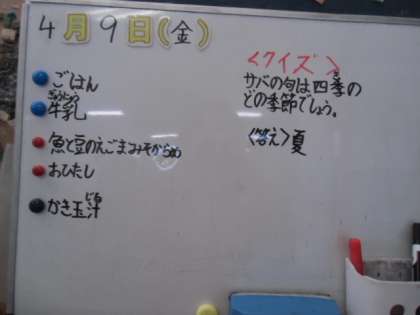 4月9日(金)
ごはん
ぎゅうにゅう
牛乳
魚と豆のえごまみそからめ
おひたし
じる
かき玉汁
<クイズ>
サバの旬は四季の
どの季節でしょう。
<答え>夏